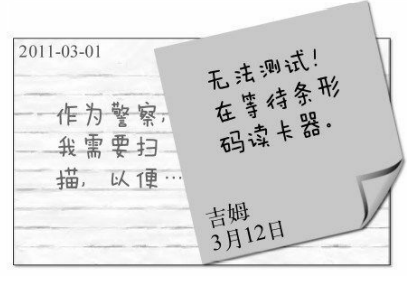 2011-03-01
作为警察,
我需要扫
描, 以便…
无法测试!
在等待条形
码读卡器。
吉姆
3月12日